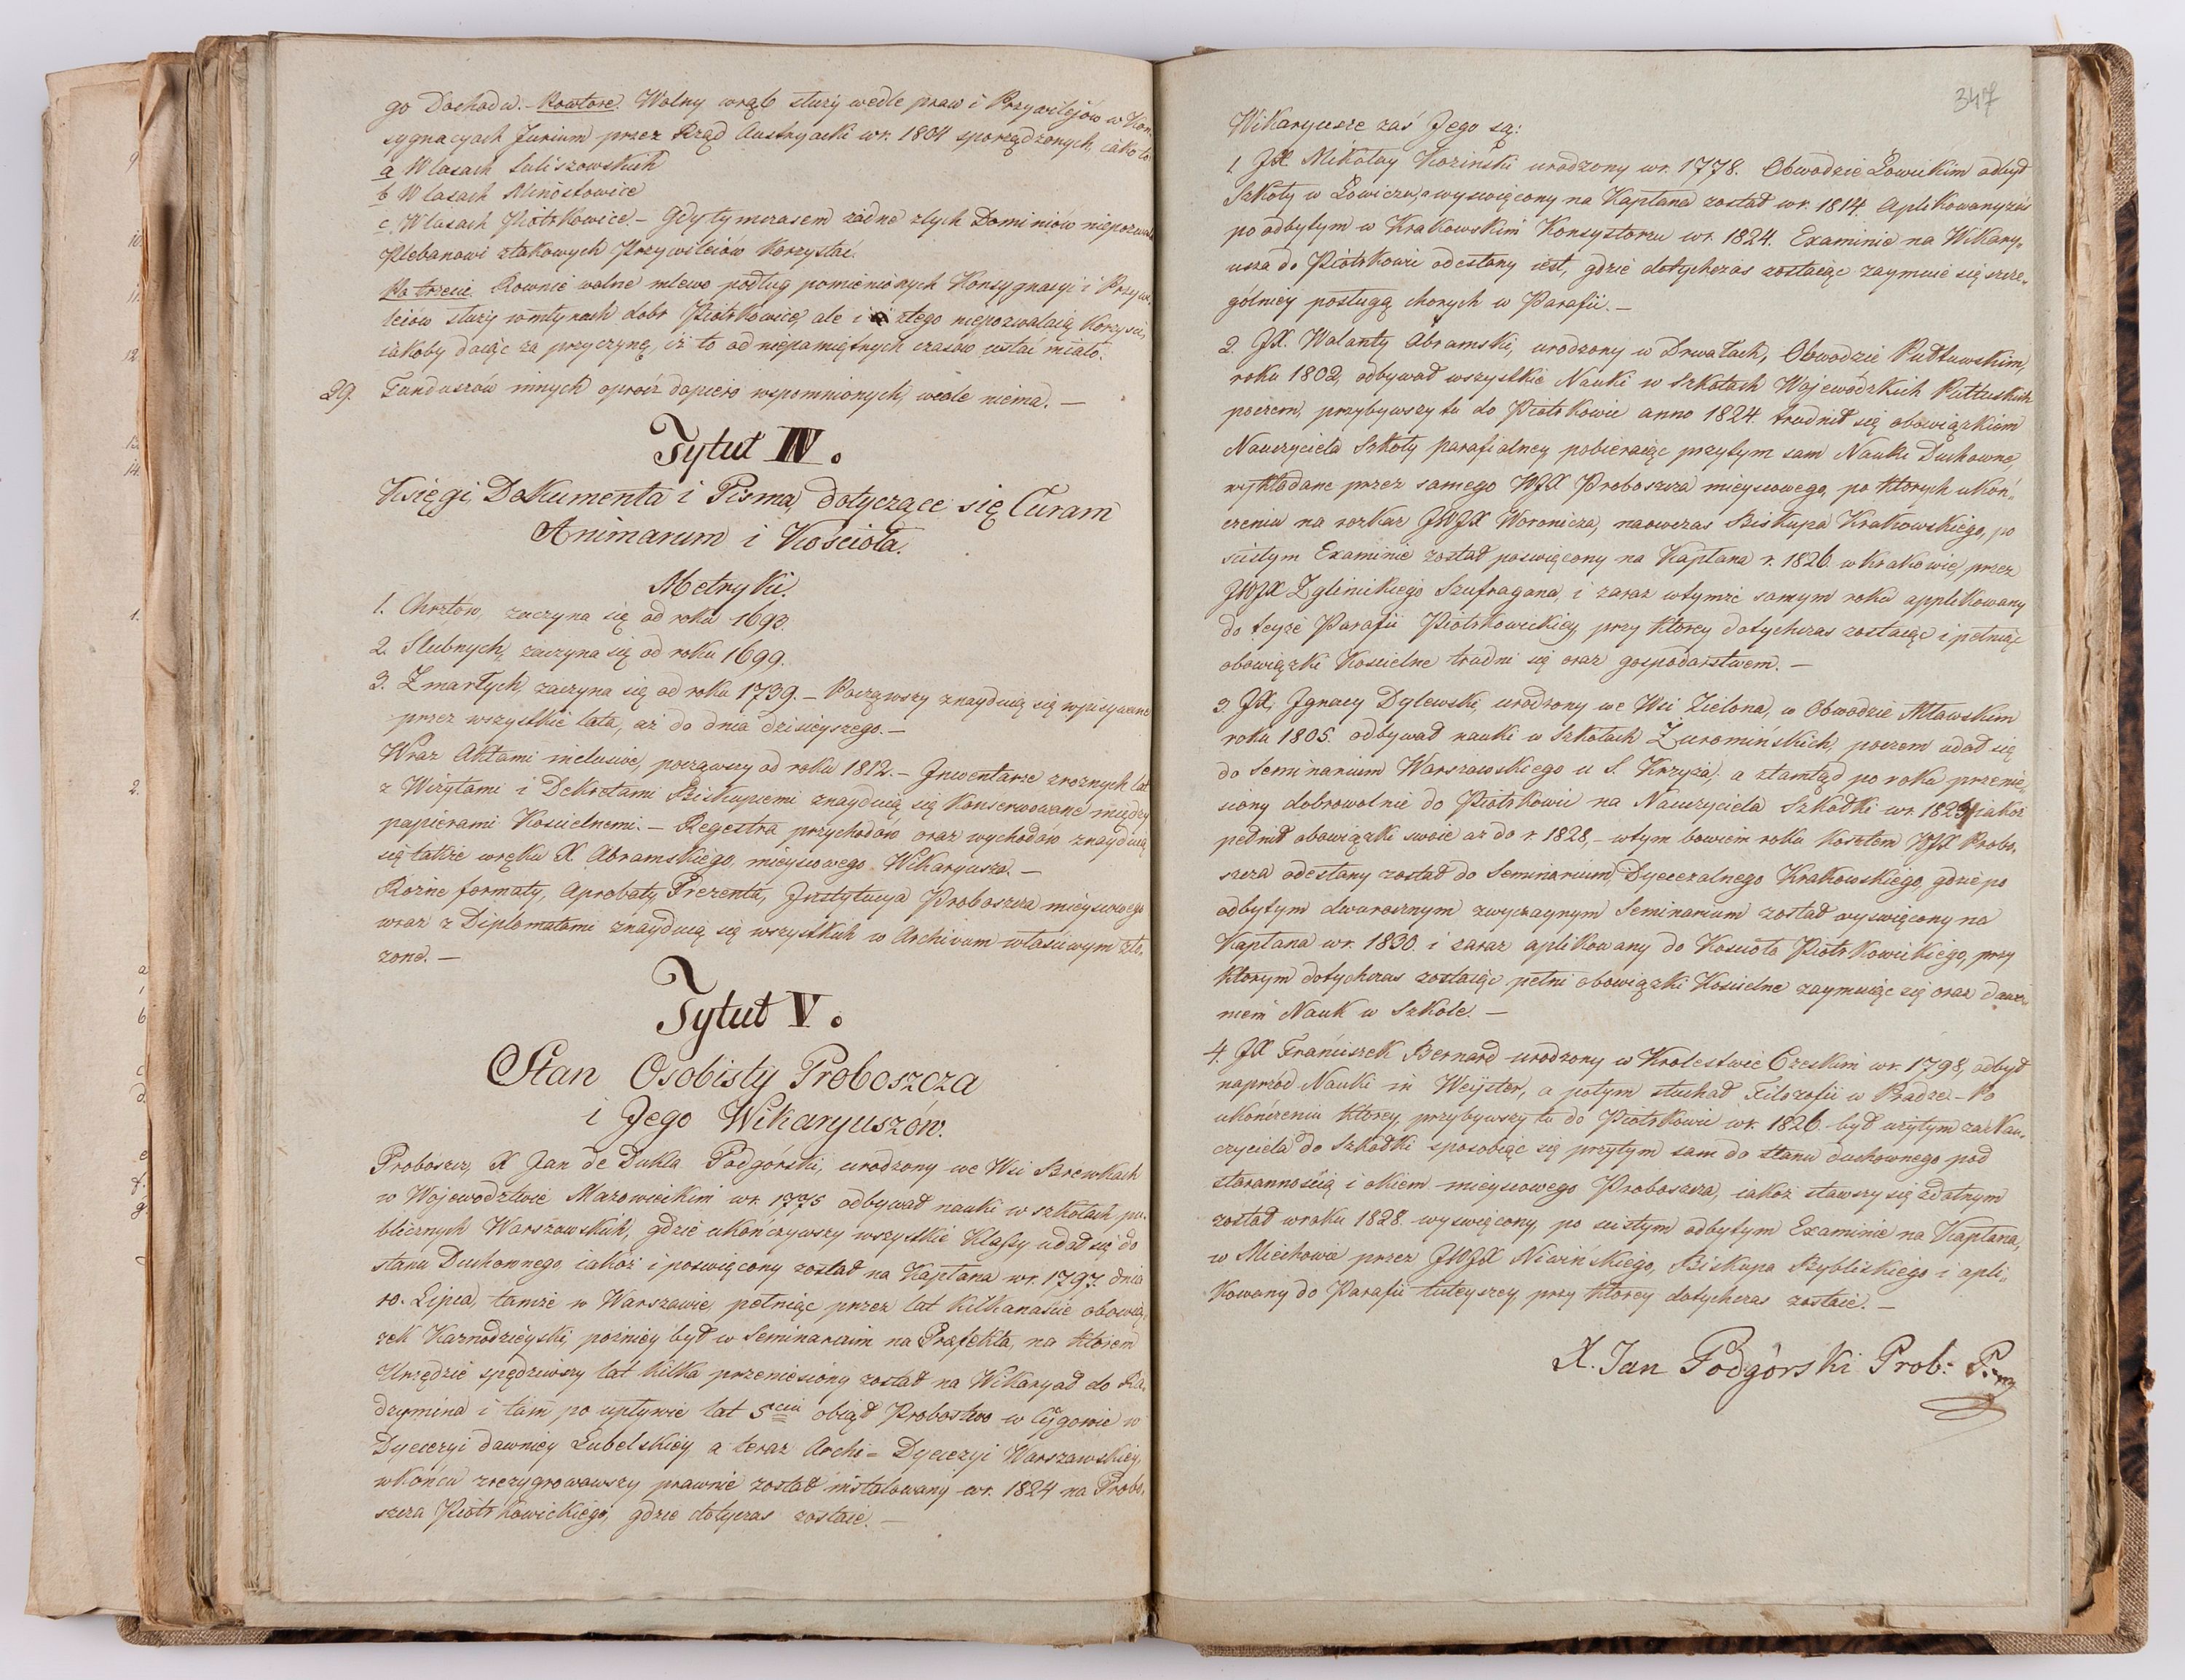 go Dochodu. – Powtore. Wolny wrąb służy wedle praw i Przywilejów w Kon-
sygnacyach Jurium przez Rząd Austryacki w r. 1804 sporządzonych, iako to:
a W lasach Suliszowskich
b W lasach Minostowice
c W lasach Piotrkowice – Gdy tymczasem żadne z tych Dominiów niepozwala
Plebanowi z takowych Przywileiów korzystać.
Po trzecie. Rownie wolne mlewo podług pomienionych Konsygnacyi i Przywi-
leiów służy w młynach dobr Piotrkowice, ale i z tego niepozwalaią korzyści,
iakoby daiąc za przyczynę, iż to od niepamiętnych czasów ustać miało.
29. Funduszów innych oprócz dopiero wspomnionych, wcale niema. –
Tytuł IV.
Księgi, Dokumenta i Pisma, dotyczące się Curam
Animarum i Kościoła.
Metryki.
1. Chrztów, zaczyna się od roku 1693.
2. Slubnych, zaczyna się od roku 1699.
3. Zmarłych, zaczyna się od roku 1739. – Począwszy znayduią się wpisywane
przez wszystkie lata, aż do dnia dzisieyszego. –
Wraz Aktami inclusive, począwszy od roku 1812. – Inwentarze z rożnych lat
z Wizytami i Dekretami Biskupiemi znayduią się konserwowane między
papierami Kościelnemi. – Regestra przychodów oraz wychodów znayduią
się także w ręku X Abramskiego, mieyscowego Wikaryusza. –
Rożne formaty, Aprobaty, Prezenta, Instytucya Proboszcza mieyscowego
wraz z Diplomatami znayduią się wszystkich w Archivum właściwym zło-
zone. –
Tytuł V.
Stan Osobisty Proboszcza
i Jego Wikaryuszów.
Proboszcz, X Jan de Dukla Podgórski, urodzony we Wsi Brewkach
w Wojewodztwie Mazowieckim w r. 1775 odbywał nauki w szkołach pu-
blicznych Warszawskich, gdzie ukończywszy wszystkie Klassy udał się do
stanu Duchownego, iakoż i poswięcony został na Kapłana w r. 1797. dnia
10. Lipca, tamże w Warszawie, pełniąc przez lat kilkanaście obowią-
zek Kaznodzieyski, poźniey był w Seminarium na Præfekta, na którem
Urzędzie spędziwszy lat kilka przeniesiony został na Wikaryad do Ra-
dzymina i tam po upływie lat 5ciu obiął Probostwo w Cygowie w
Dyecezyi dawniey Lubelskiey a teraz Archi = Dyecezyi Warszawskiey,
w końcu zrezygnowawszy prawnie został instalowany w r. 1824 na Probo-
szcza Piotrkowickiego, gdzie dotyczas zostaie. –
347
Wikaryusze zaś Jego są:
1. JX Mikołay Kozinski urodzony w r. 1778. Obwodzie Łowickim odbył
Szkoły w Łowiczu, a wyswięcony na Kapłana został w r. 1814. Aplikowany zaś
po odbytym w Krakowskim Konsystorzu w r. 1824. Examinie na Wikary-
usza do Piotrkowic odesłany iest, gdzie dotychczas zostaiąc zaymuie się szcze-
gólniey posługą chorych w Parafii. –
2. JX. Walanty Abramski, urodzony w Drwałach, Obwodzie Pułtuskim,
roku 1802, odbywał wszystkie Nauki w Szkołach Wojewodzkich Pułtuskich
poczem, przybywszy tu do Piotrkowic anno 1824. trudnił się obowiązkiem
Nauczyciela Szkoły parafialney pobieraiąc przytym sam Nauki Duchowne,
wykładane przez samego WJX Proboszcza mieyscowego, po których ukoń-
czeniu na rozkaz JWJX Woronicza, naowczas Biskupa Krakowskiego, po
scisłym Examinie został poswięcony na Kapłana r. 1826. w Krakowie, przez
JWJX Zglenickiego Szufragana, i zaraz w tymże samym roku applikowany
do teyże Parafii Piotrkowickiey, przy ktorey dotychczas zostaiąc i pełniąc
obowiązki Kościelne trudni się oraz gospodarstwem. –
3. JX, Ignacy Dylewski, urodzony we Wsi Zielona, w Obwodzie Mławskim
roku 1805. odbywał nauki w Szkołach Zuromińskich, poczem udał się
do Seminarium Warszawskiego u S. Krzyża, a ztamtąd po roku przenie-
siony dobrowolnie do Piotrkowic na Nauczyciela Szkołki w r. iakoż
pełnił obowiązki swoie aż do r. 1828, – w tym bowiem roku kosztem WJX Probo-
szcza odesłany został do Seminarium Dyecezalnego Krakowskiego, gdzie po
odbytym dwurocznym zwyczaynym Seminarium został wyswięcony na
Kapłana w r. 1830. i zaraz aplikowany do Kościoła Piotrkowickiego, przy
ktorym dotychczas zostaiąc pełni obowiązki Kościelne zaymuiąc się oraz dawa-
niem Nauk w Szkole. –
4. JX Franciszek Bernard urodzony w Krolestwie Czeskim w r. 1798, odbył
naprzód Nauki in Weyster, a potym słuchał Filozofii w Pradze – Po
ukończeniu ktorey, przybywszy tu do Piotrkowic w r. 1826. był użytym za Nau-
czyciela do Szkołki sposobiąc się przytym sam do stanu duchownego pod
starannością i okiem mieyscowego Proboszcza, iakoż stawszy się zdatnym
został w roku 1828. wyswięcony, po scisłym odbytym Examinie na Kapłana,
w Miechowie przez JWJX Niwińskiego, Biskupa Bybliskiego i apli-
kowany do Parafii tuteyszey, przy ktorey dotychczas zostaie. –
X. Jan Podgórski Prob: